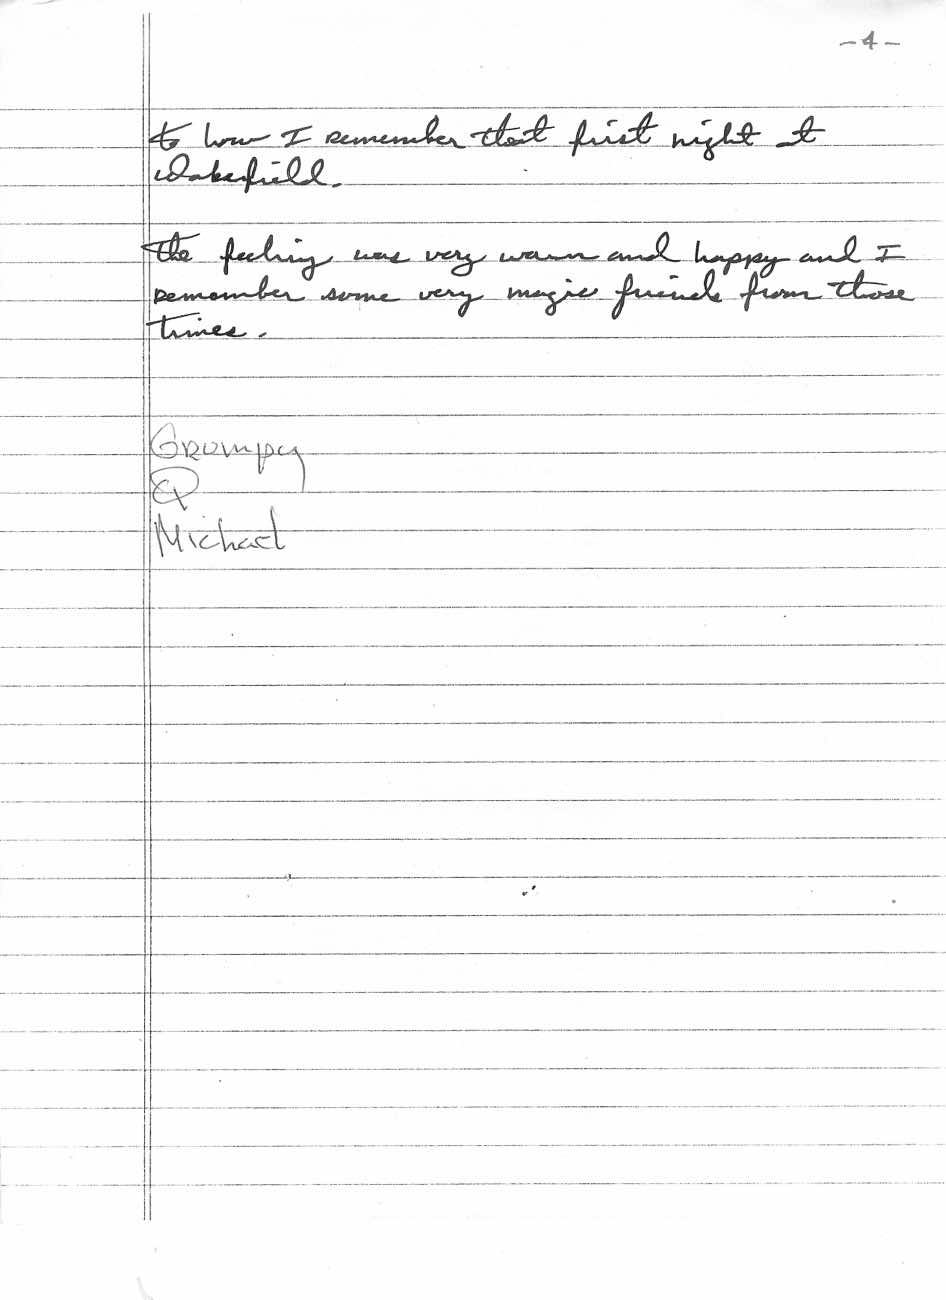 -4-
to how I remember that first night at
Wakefield.
The feeling was very warm and happy and I
remember some very magic friends from those
times.
Grumpy
Michael